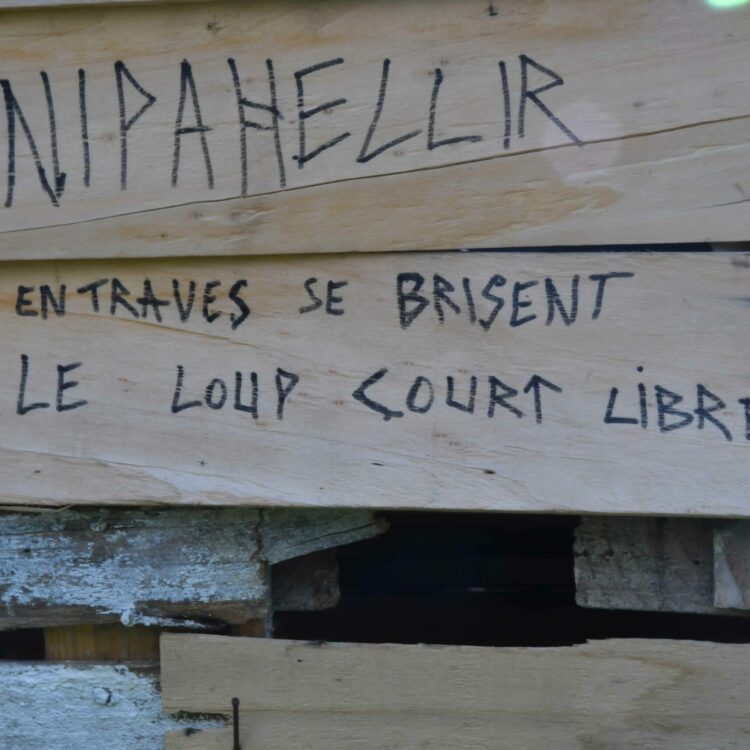 NIPAHELLIR
ENTRAVES SE BRISENT
LE LOUP COURT LIBRE